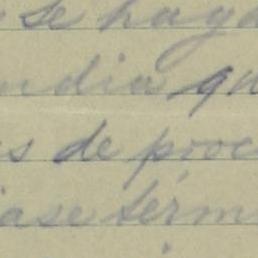 se haga
ndia qu
s de proc
ase térm